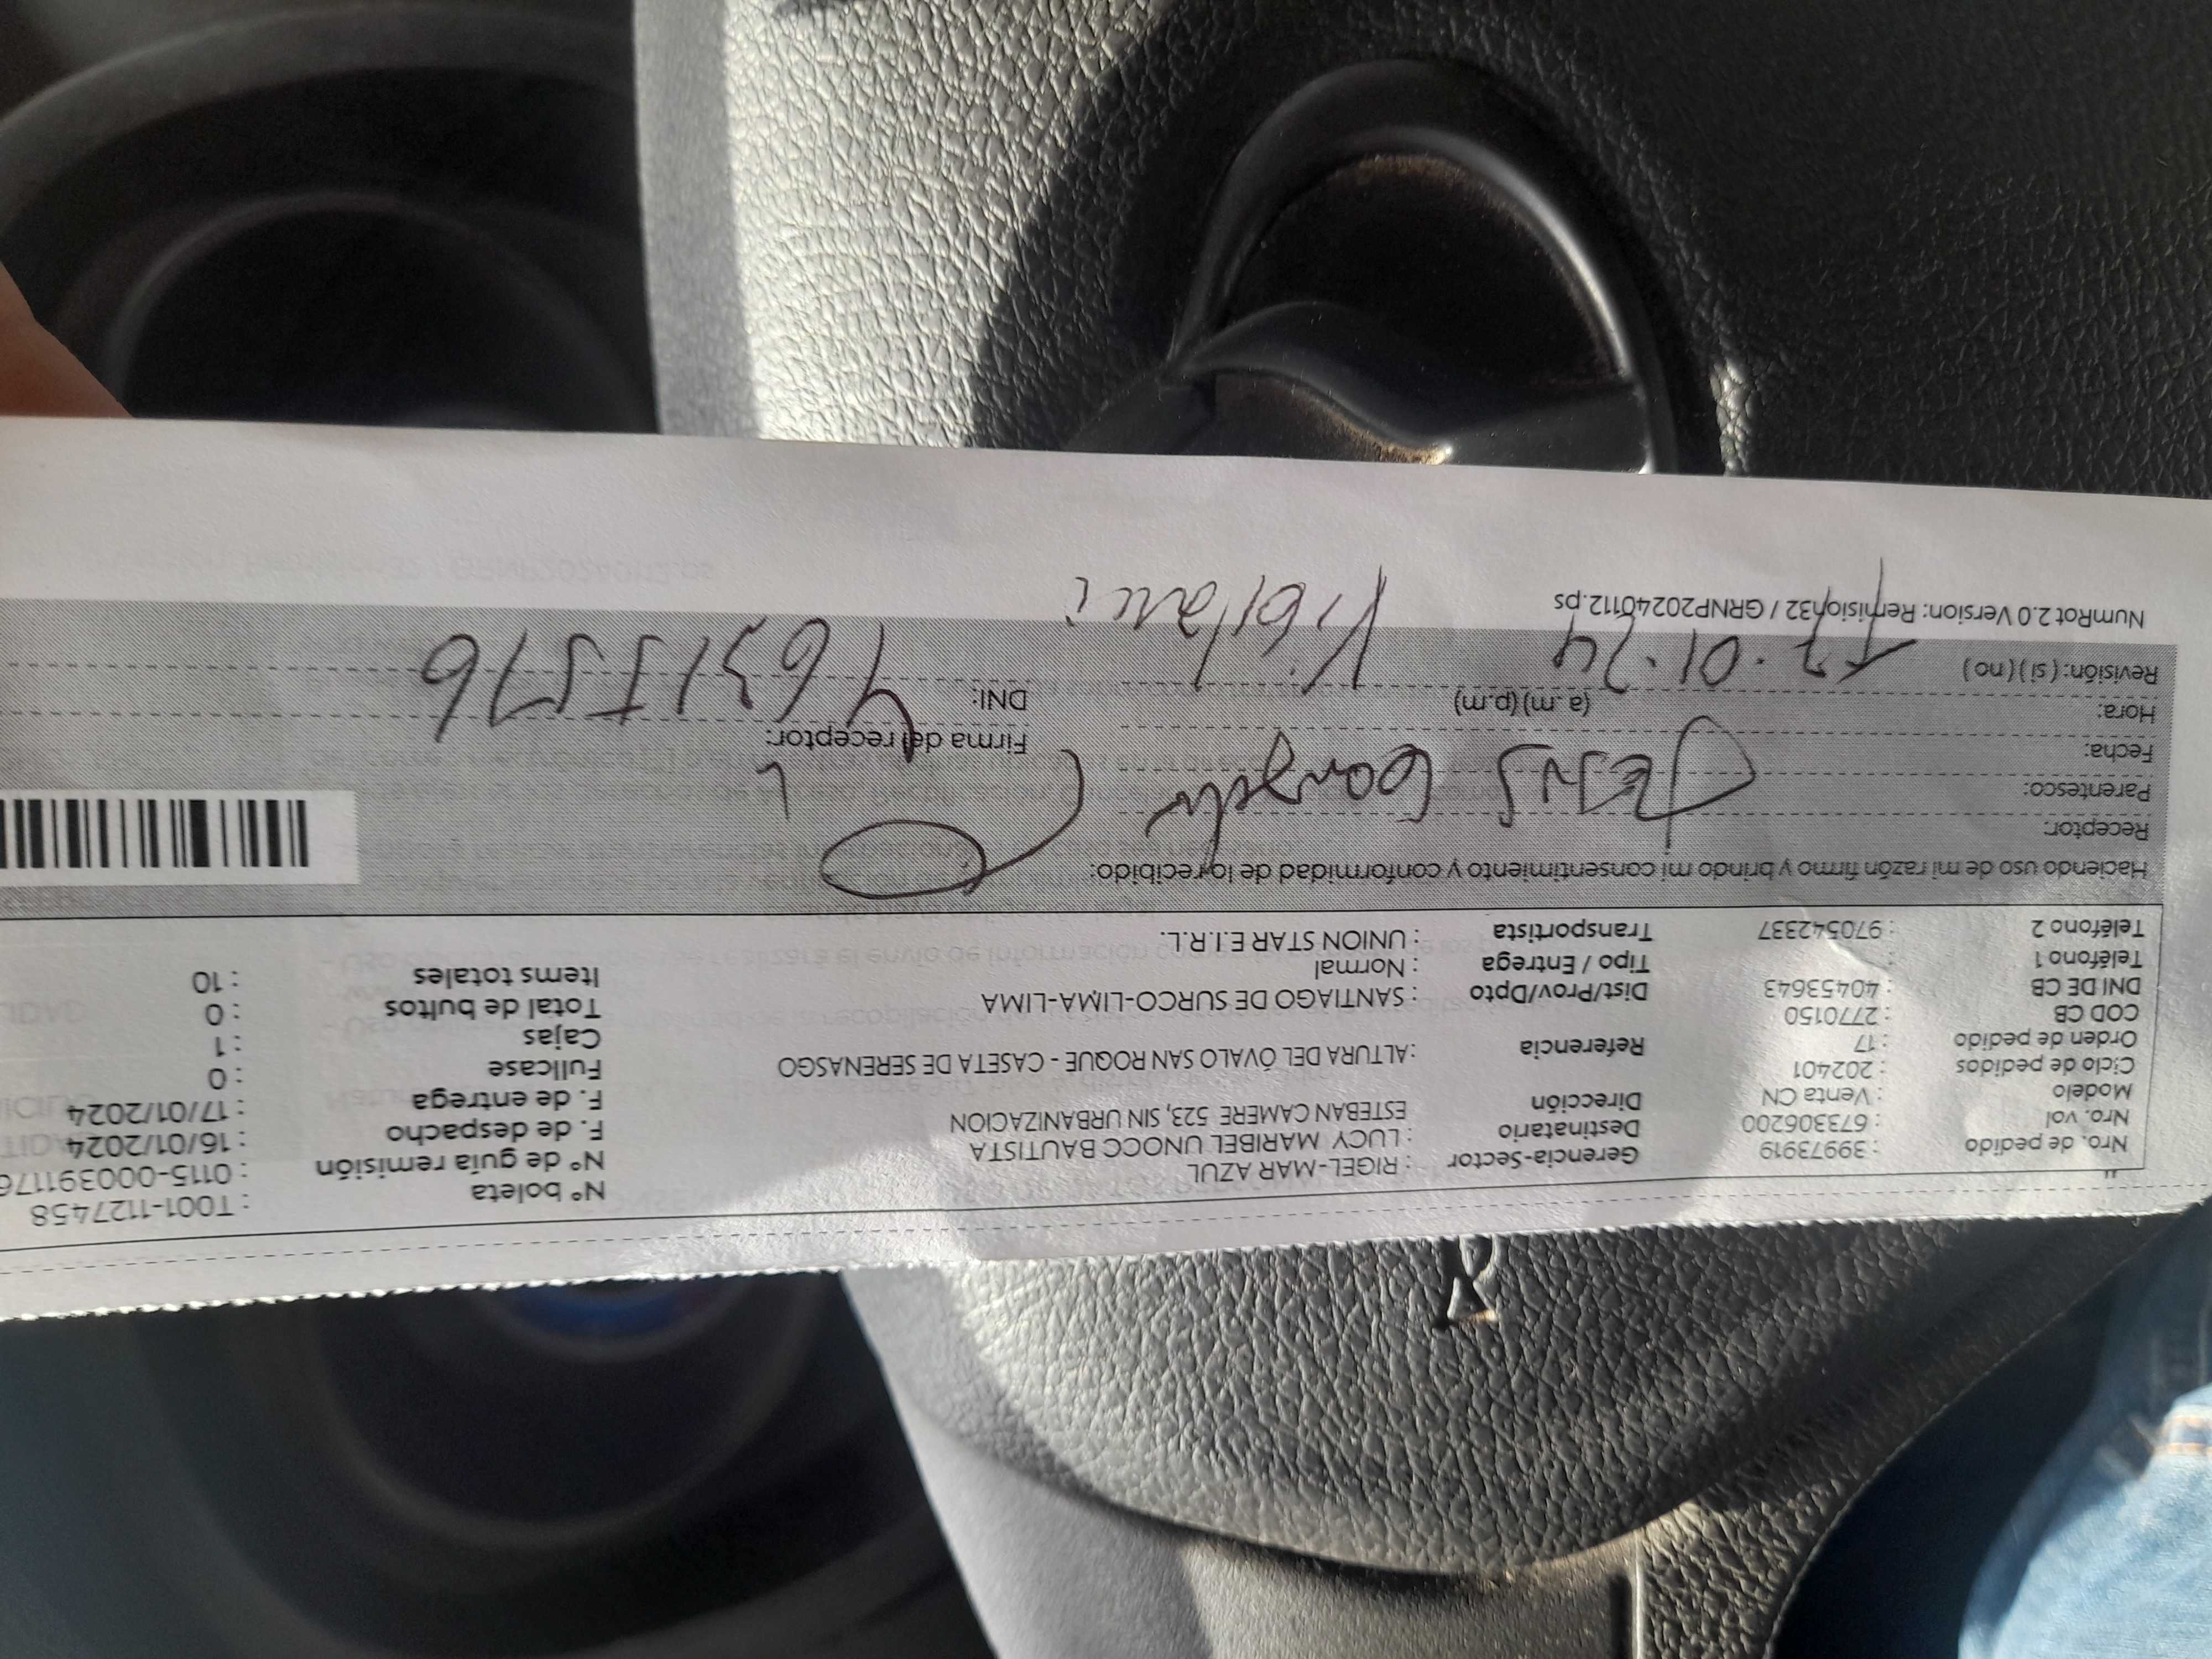 Nro. de pedido : 39973919 Gerencia-Sector : RIGEL-MAR AZUL Nº boleta : T001-1127458
Nro. vol : 673306200 Destinatario : LUCY MARIBEL UNOCC BAUTISTA Nº de guía remisión : 0115-000391176
Modelo : Venta CN Dirección ESTEBAN CAMERE 523, SIN URBANIZACION F. de despacho : 16/01/2024
Ciclo de pedidos : 202401 F. de entrega : 17/01/2024
Orden de pedido : 17 Referencia : ALTURA DEL ÓVALO SAN ROQUE - CASETA DE SERENASGO Fullcase : 0
COD CB : 2770150 Cajas : 1
DNI DE CB : 40453643 Dist/Prov/Dpto : SANTIAGO DE SURCO-LIMA-LIMA Total de bultos : 0
Teléfono 1 : Tipo / Entrega : Normal Items totales : 10
Teléfono 2 : 970542337 Transportista : UNION STAR E.I.R.L.
Haciendo uso de mi razón firmo y brindo mi consentimiento y conformidad de lo recibido:
Receptor:
Parentesco:
Fecha: Firma del receptor:
Hora: (a.m) (p.m) DNI:
Revisión: (si) (no) 17.01.24
NumRot 2.0 Version: Remision32 / GRNP20240112.ps